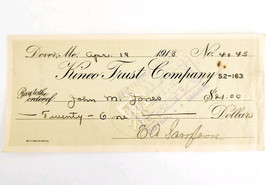 Dover, Me. Apr. 19 1918 No. 4045
Kineo Trust Company 52-163
Pay to the order of John M. Jones $21.00
Twenty-One Dollars